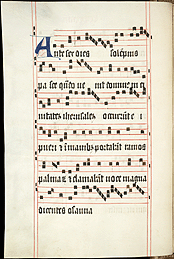 Ante sex dies solẽpnis
pasce qũdo ue nit dominus in ci
uitatẽ iherusalẽ occurrẽt i
pueri & in manib; portabãt ramos
palmaꝝ & clamabãt uoce magna
dicentes osanna